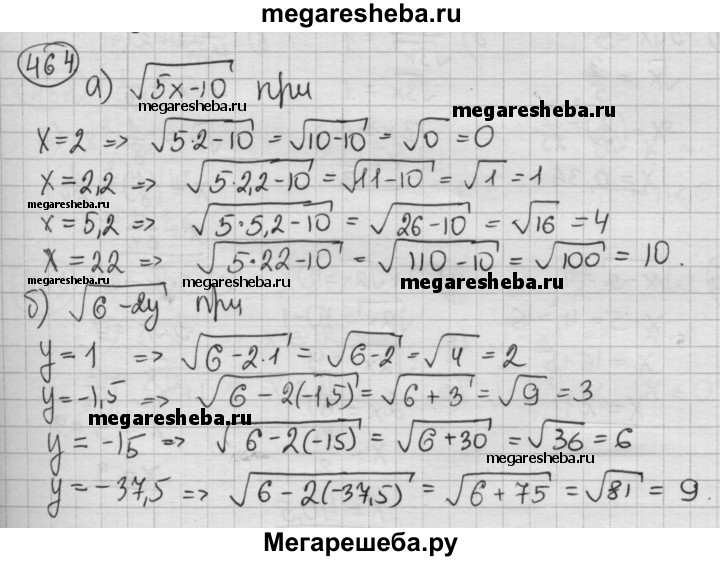 megaresheba.ru
464
а) √(5x-10) при
megaresheba.ru megaresheba.ru
x=2 => √(5·2-10) = √(10-10) = √0 = 0
x=2,2 => √(5·2,2-10) = √(11-10) = √1 = 1
megaresheba.ru
x=5,2 => √(5·5,2-10) = √(26-10) = √16 = 4
x=22 => √(5·22-10) = √(110-10) = √100 = 10.
megaresheba.ru megaresheba.ru
б) √(6-2y) при
y=1 => √(6-2·1) = √(6-2) = √4 = 2
y=-1,5 => √(6-2(-1,5)) = √(6+3) = √9 = 3
megaresheba.ru
y=-15 => √(6-2(-15)) = √(6+30) = √36 = 6
megaresheba.ru
y=-37,5 => √(6-2(-37,5)) = √(6+75) = √81 = 9.
Мегарешеба.ру